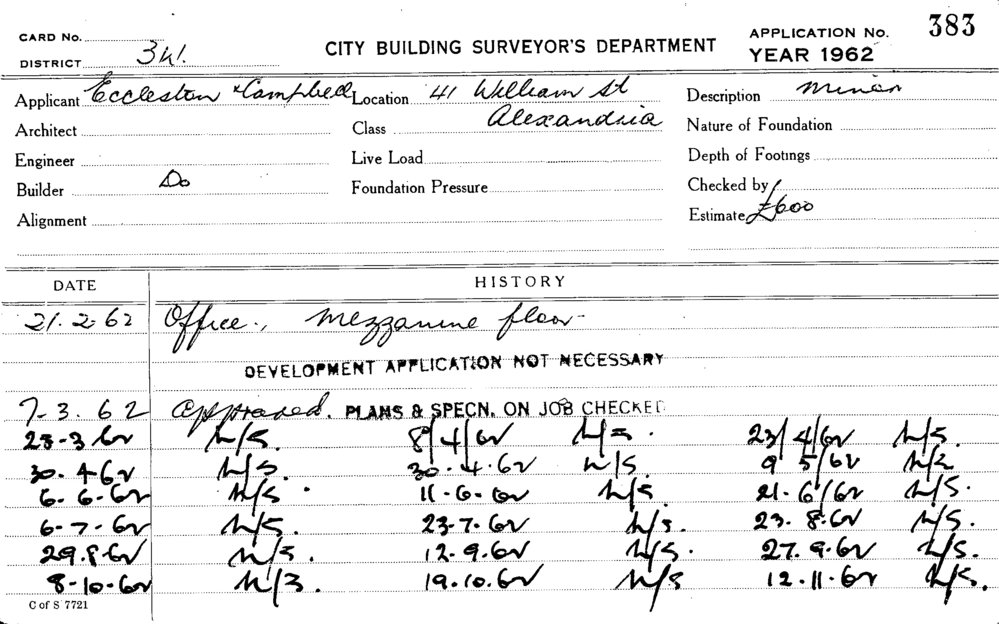 CARD No. CITY BUILDING SURVEYOR'S DEPARTMENT APPLICATION No. 383
DISTRICT 3W. YEAR 1962
Applicant Eccleston & Campbell Location 41 William St Description Minor
Architect Class Alexandria Nature of Foundation
Engineer Live Load Depth of Footings
Builder Do Foundation Pressure Checked by
Alignment Estimate £600
DATE HISTORY
21.2.62 Office, Mezzanine floor
DEVELOPMENT APPLICATION NOT NECESSARY
7-3.62 Approved. PLANS & SPECN. ON JOB CHECKED
23-3-62 N/S. 8/4/62 N/S. 23/4/62 N/S.
30.4.62 N/S. 30.4.62 N/S. 9 5/62 N/S
6-6-62 N/S. 11-6-62 N/S. 21-6/62 N/S.
6-7-62 N/S. 23-7-62 N/S. 23.8.62 N/S.
29.8.62 N/S. 12.9.62 N/S. 27.9.62 N/S.
8-10-62 N/S. 19.10.62 N/S 12.11.62 N/S.
C of S 7721